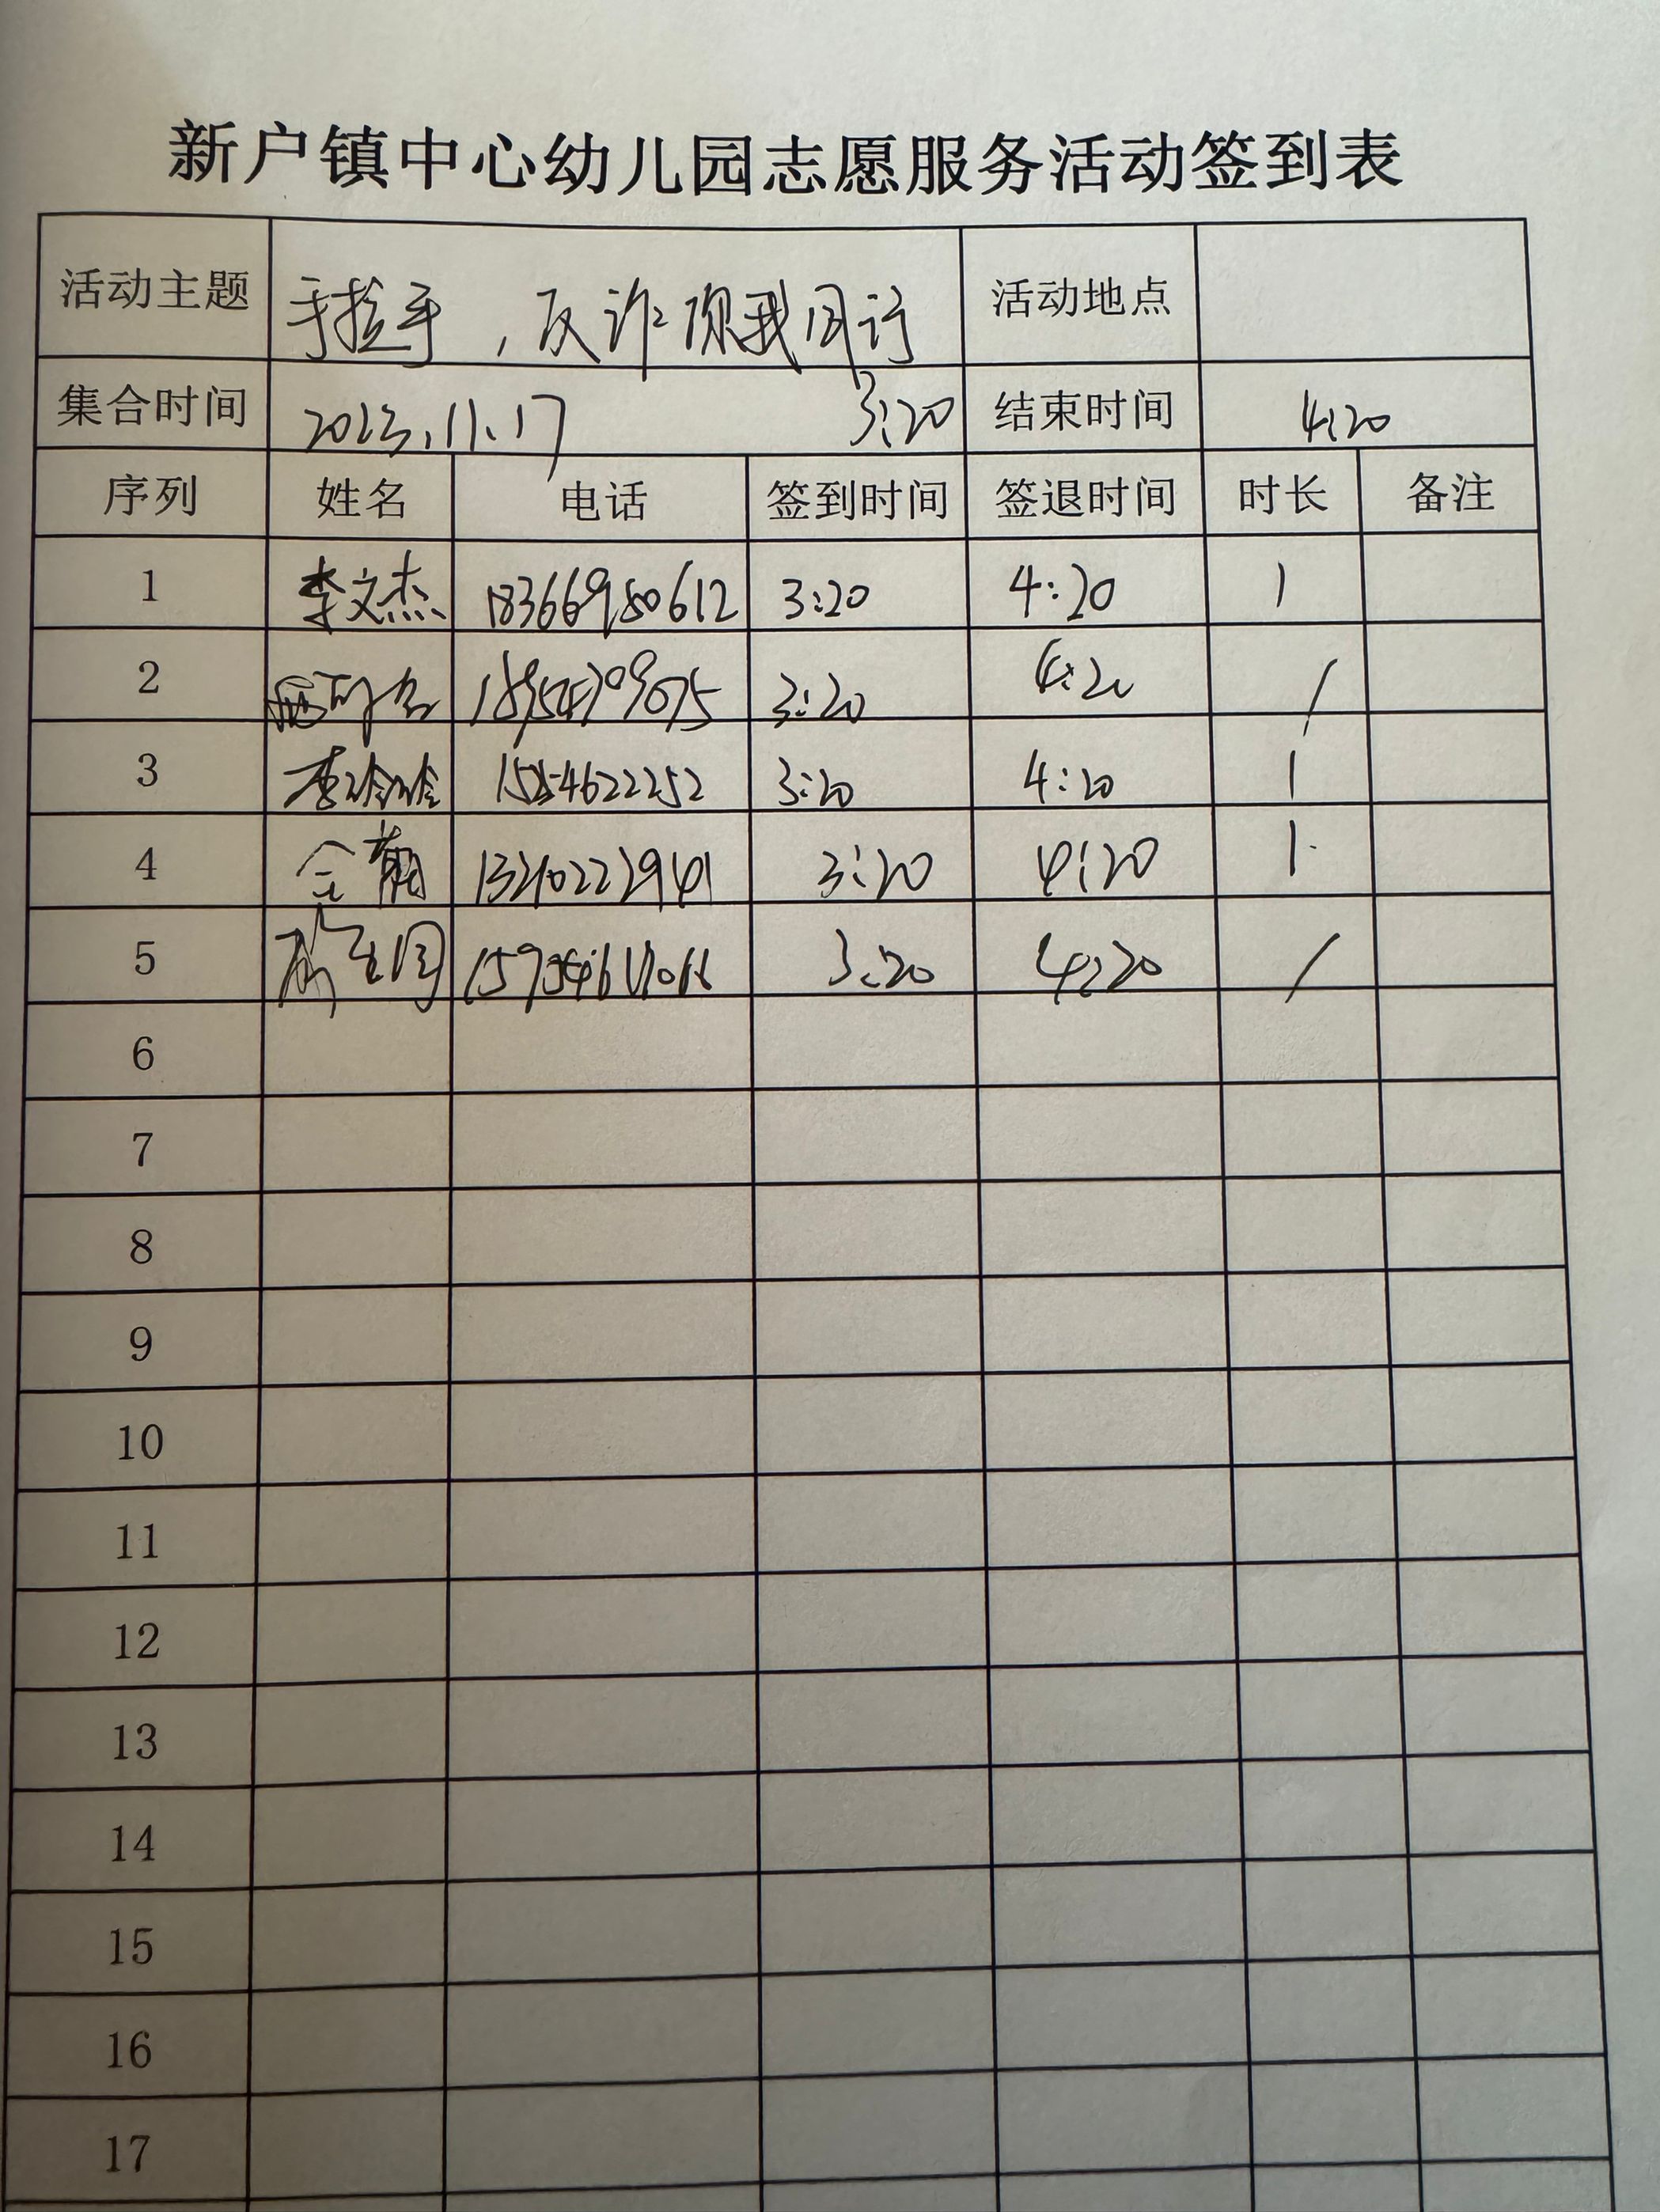 新户镇中心幼儿园志愿服务活动签到表
活动主题 手拉手，反诈你我同行 活动地点
集合时间 2023.11.17 3:20 结束时间 4:20
序列 姓名 电话 签到时间 签退时间 时长 备注
1 李文杰 18366980612 3:20 4:20 1
2 3:20 4:20 1
3 李玲玲 15254622252 3:20 4:20 1
4 3:20 4:20 1
5 3:20 4:20 1
6
7
8
9
10
11
12
13
14
15
16
17